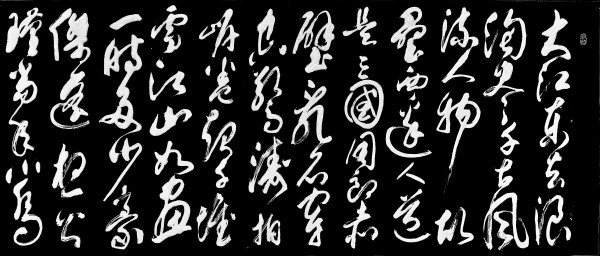 大江东去浪
淘尽千古风
流人物故
垒西边人道
是三國周郎赤
壁乱石穿
空惊涛拍
岸卷起千堆
雪江山如画
一时多少豪
傑遥想公
瑾当年小乔